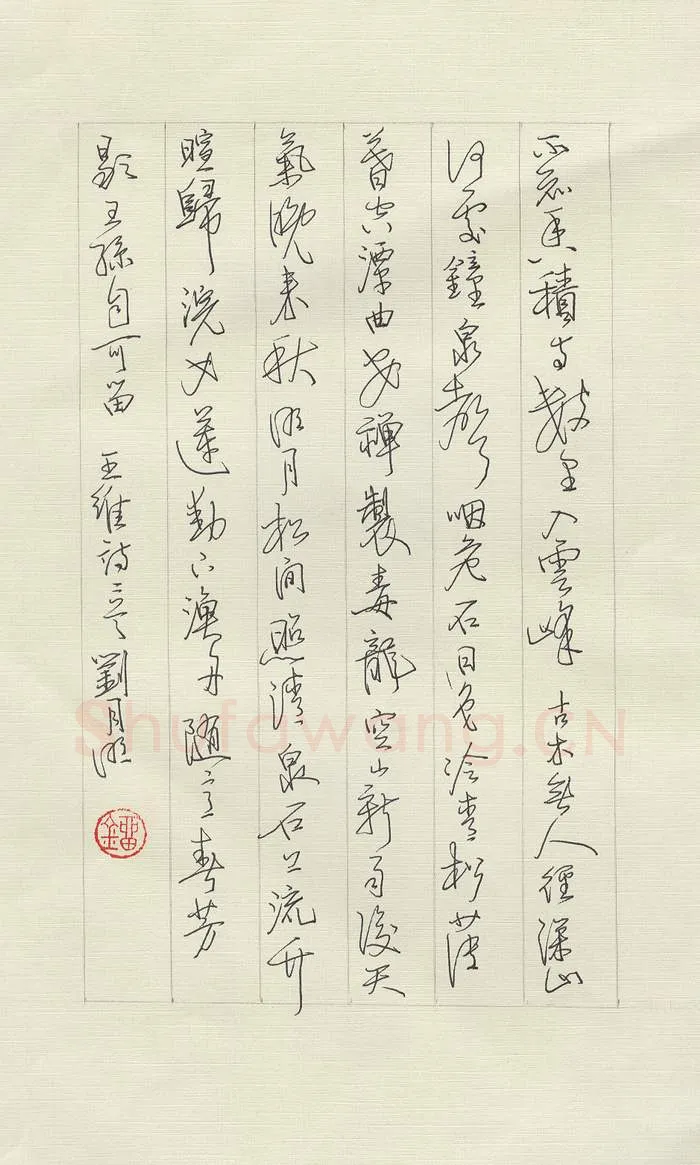 不知香積寺數里入雲峰古木無人徑深山
何處鐘泉聲咽危石日色冷青松薄
暮空潭曲安禪製毒龍空山新雨後天
氣晚來秋明月松間照清泉石上流竹
喧歸浣女蓮動下漁舟隨意春芳
歇王孫自可留 王維詩二首 劉月明
Shufawang.CN